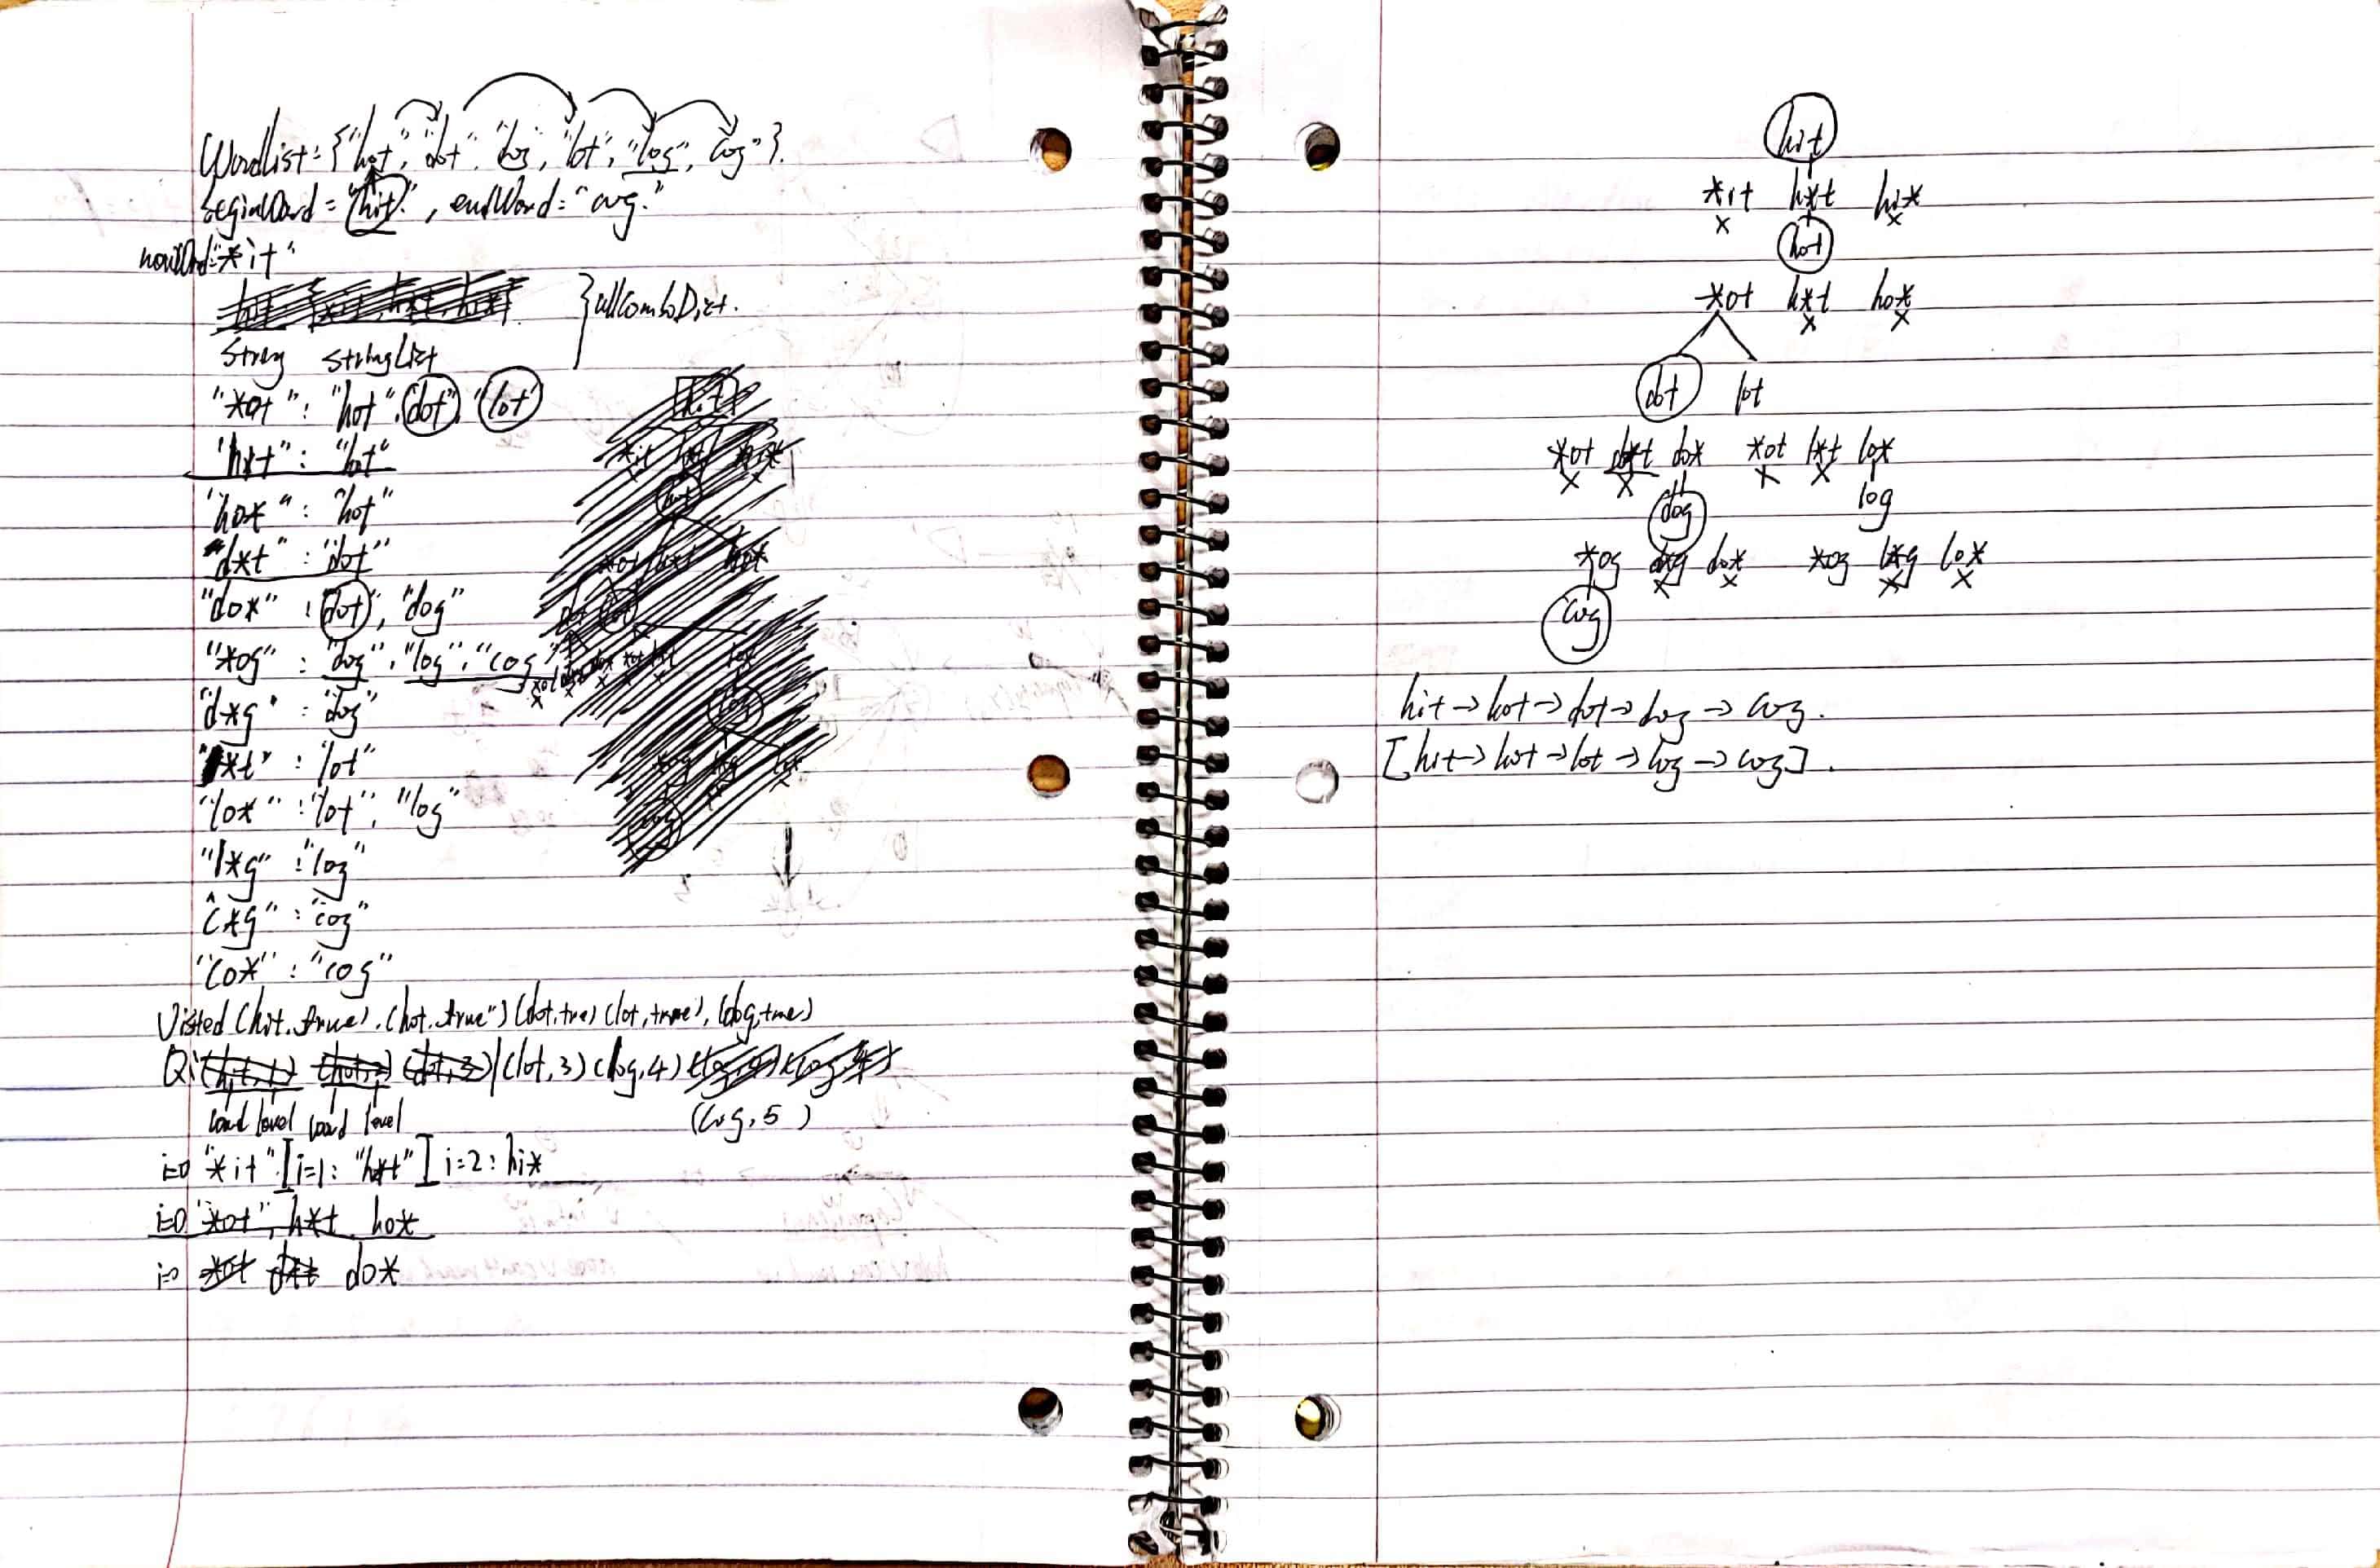 WordList = {"hot", "dot", "dog", "lot", "log", "cog"}.
beginWord = "hit", endWord = "cog."
"*it"
} allComboDict.
String stringList
"*ot" : "hot", "dot", "lot"
"h*t" : "hot"
"ho*" : "hot"
"d*t" : "dot"
"do*" : "dot", "dog"
"*og" : "dog", "log", "cog"
"d*g" : "dog"
"l*t" : "lot"
"lo*" : "lot", "log"
"l*g" : "log"
"c*g" : "cog"
"co*" : "cog"
Visted (hit, true), (hot, true") (dot, true) (lot, true), (dog, true)
Q: (hit, 1) (hot, 2) (dot, 3) | (lot, 3) (dog, 4)
word level word level (cog, 5)
i=0 "*it" [i=1: "h*t"] i=2: hi*
i=0 "*ot", h*t ho*
i=0 *ot d*t do*
hit
*it h*t hi*
x x
hot
*ot h*t ho*
x x
dot lot
*ot d*t do* *ot l*t lo*
x x x x
dog log
*og d*g do* *og l*g lo*
x x x x
cog
hit → hot → dot → dog → cog.
[hit → hot → lot → log → cog].